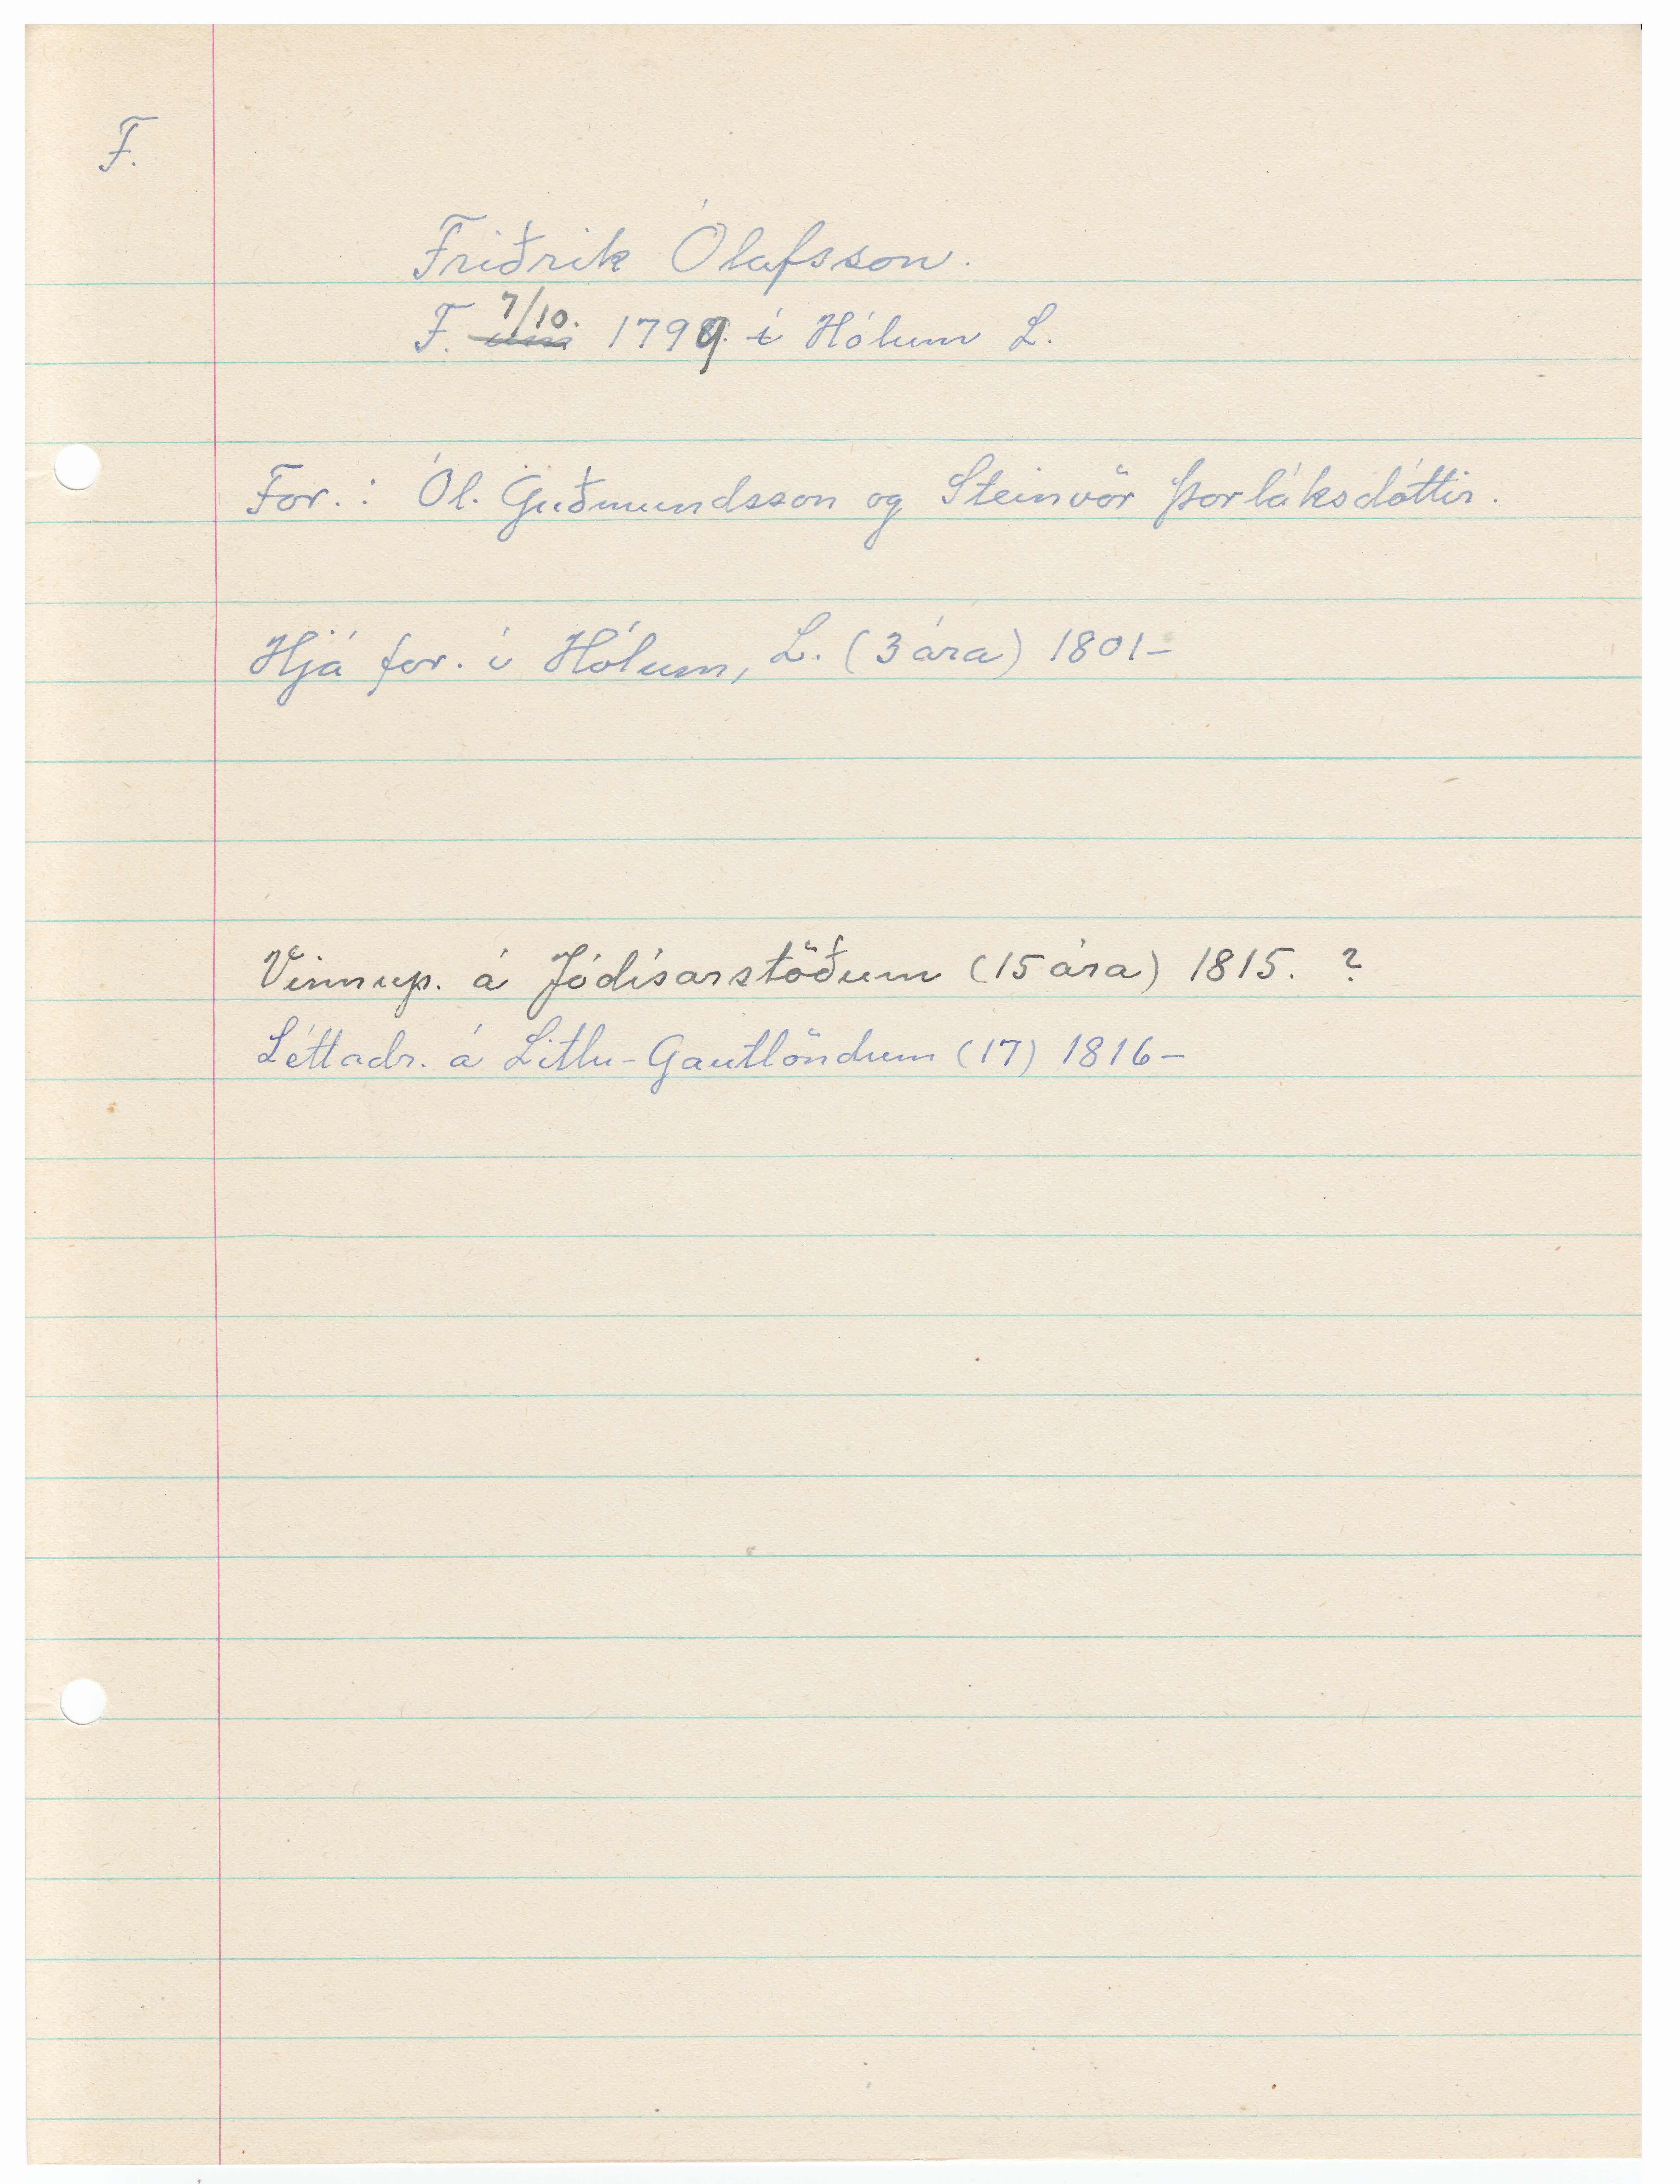 F.
Friðrik Ólafsson.
F. 7/10. 1799. í Hólum L.
For.: Ól. Guðmundsson og Steinvör Þorláksdóttir.
Hjá for. í Hólum, L. (3 ára) 1801-
Vinnup. á Jódísarstöðum (15 ára) 1815. ?
Léttadr. á Litlu-Gautlöndum (17) 1816-